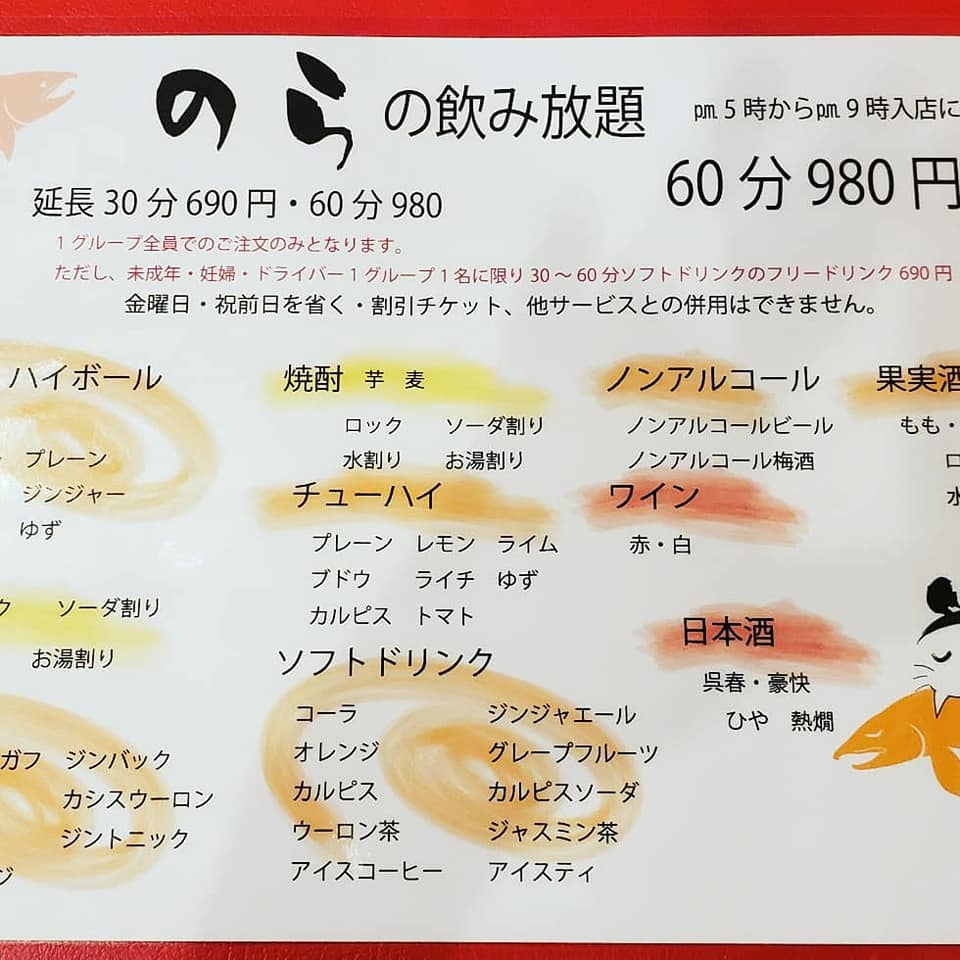 のら の飲み放題 pm5時からpm9時入店に
60分980円
延長30分690円・60分980
1グループ全員でのご注文のみとなります。
ただし、未成年・妊婦・ドライバー1グループ1名に限り30～60分ソフトドリンクのフリードリンク690円
金曜日・祝前日を省く・割引チケット、他サービスとの併用はできません。
ハイボール
プレーン
ジンジャー
ゆず
ク ソーダ割り
お湯割り
ガフ ジンバック
カシスウーロン
ジントニック
ジ
焼酎 芋 麦
ロック ソーダ割り
水割り お湯割り
チューハイ
プレーン レモン ライム
ブドウ ライチ ゆず
カルピス トマト
ソフトドリンク
コーラ ジンジャエール
オレンジ グレープフルーツ
カルピス カルピスソーダ
ウーロン茶 ジャスミン茶
アイスコーヒー アイスティ
ノンアルコール
ノンアルコールビール
ノンアルコール梅酒
ワイン
赤・白
日本酒
呉春・豪快
ひや 熱燗
果実酒
もも・
ロ
水